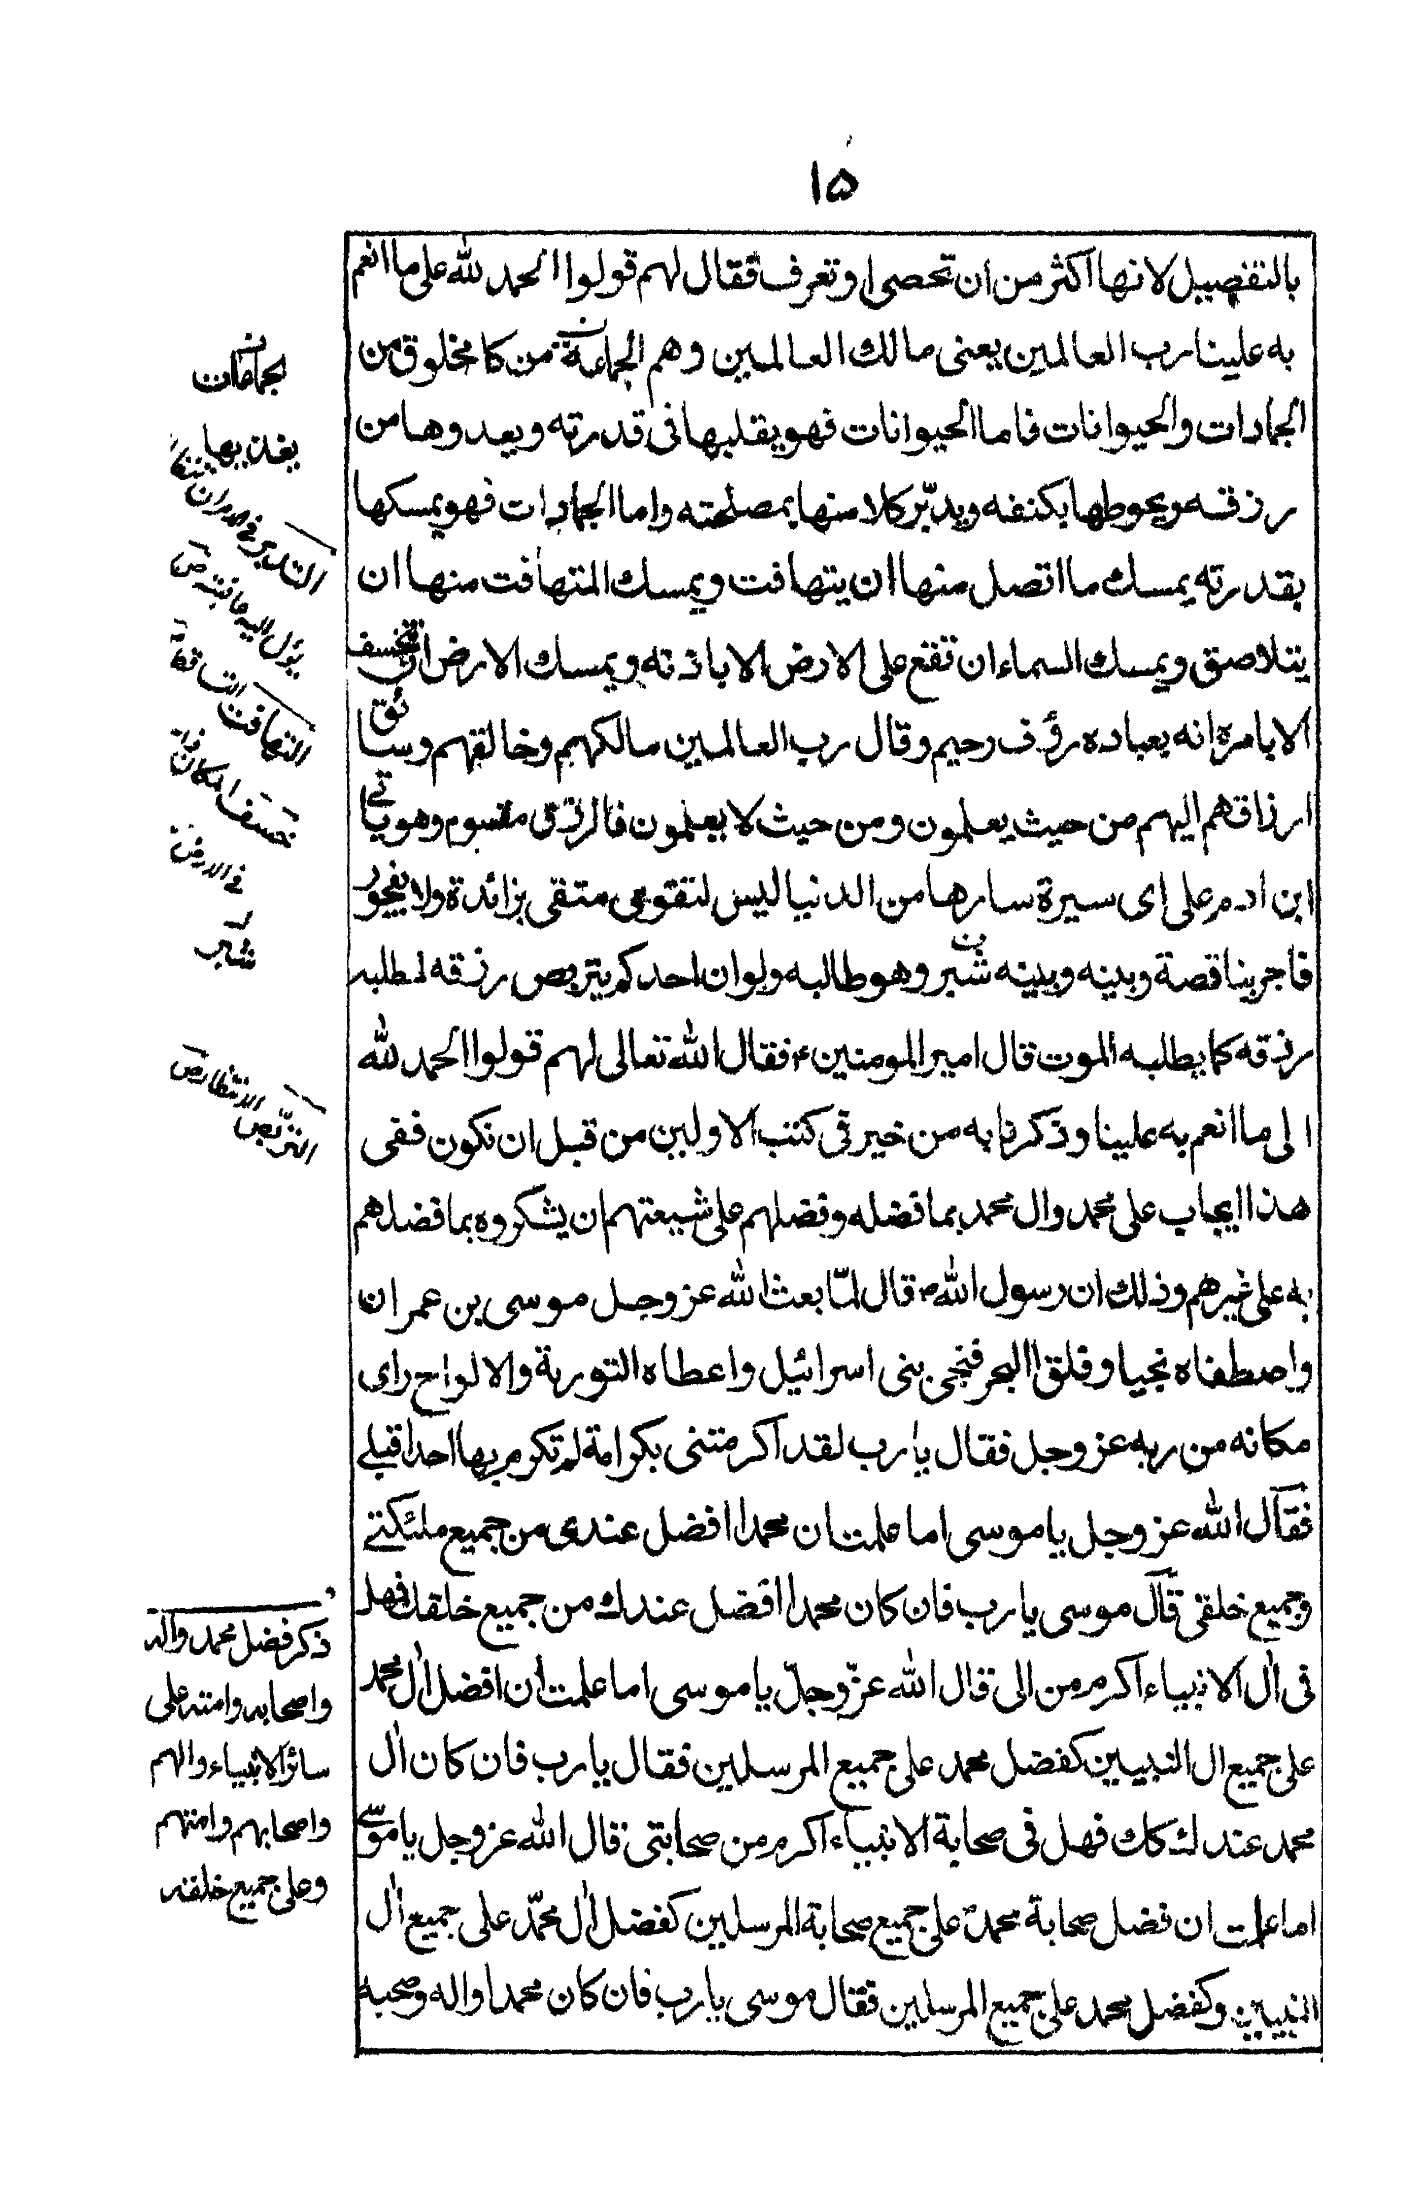 ١٥
بالتفصيل لانها اكثر من ان تحصى او تعرف فقال لهم قولوا الحمد لله على ما انعم
به علينا رب العالمين يعنى مالك العالمين وهم الجماعة من كل مخلوق من
الجمادات والحيوانات فاما الحيوانات فهو يقلبها فى قدرته ويعدوها من
رزقه ويحوطها بكنفه ويدبّر كلا منها بمصلحته واما الجمادات فهو يمسكها
بقدرته يمسك ما اتصل منها ان يتهافت ويمسك المتهافت منها ان
يتلاصق ويمسك السماء ان تقع على الارض الا باذنه ويمسك الارض ان تخسف
الا بامره انه بعباده رؤف رحيم وقال رب العالمين مالكهم وخالقهم وسائق
ارزاقهم اليهم من حيث يعلمون ومن حيث لا يعلمون فالرزق مقسوم وهو ياتى
ابن ادم على اى سيرة سارها من الدنيا ليس لتقوى متقى بزائدة ولا بفجور
فاجر بناقصة وبينه وبينه شبر وهو طالبه ولو ان احدكم يتربص رزقه لطلبه
رزقه كما يطلبه الموت قال امير المومنين ع فقال الله تعالى لهم قولوا الحمد لله
الى ما انعم به علينا وذكرنا به من خير فى كتب الاولين من قبل ان نكون ففى
هذا ايجاب على محمد وال محمد بما فضله وفضلهم على شيعتهم ان يشكروه بما فضلهم
به على غيرهم وذلك ان رسول الله ص قال لمّا بعث الله عز وجل موسى بن عمران
واصطفاه نجيا وفلق البحر فنجى بنى اسرائيل واعطاه التورية والالواح راى
مكانه من ربه عز وجل فقال يا رب لقد اكرمتنى بكرامة لم تكرم بها احدا قبلى
فقال الله عز وجل يا موسى اما علمت ان محمدا افضل عندى من جميع ملئكتى
وجميع خلقى قال موسى يا رب فان كان محمدا افضل عندك من جميع خلقك فهل
فى ال الانبياء اكرم من الى قال الله عزّ وجلّ يا موسى اما علمت ان افضل ال محمد
على جميع ال النبيين كفضل محمد على جميع المرسلين فقال يا رب فان كان ال
محمد عندك كك فهل فى صحابة الانبياء اكرم من صحابتى قال الله عز وجل يا موسى
اما علمت ان فضل صحابة محمد على جميع صحابة المرسلين كفضل ال محمّد على جميع ال
النبيين وكفضل محمد على جميع المرسلين فقال موسى يا رب فان كان محمدا واله وصحبه
الجماعات
يغذيها
التدبر فى الامر ان تنظر
يؤل اليه عاقبته ص
التهافت التساقط
خسف المكان
فى الارض
ستر
التربّص الانتظار ص
ذكر فضل محمد واله
واصحابه وامته على
سائر الانبياء والهم
واصحابهم وامتهم
وعلى جميع خلقه